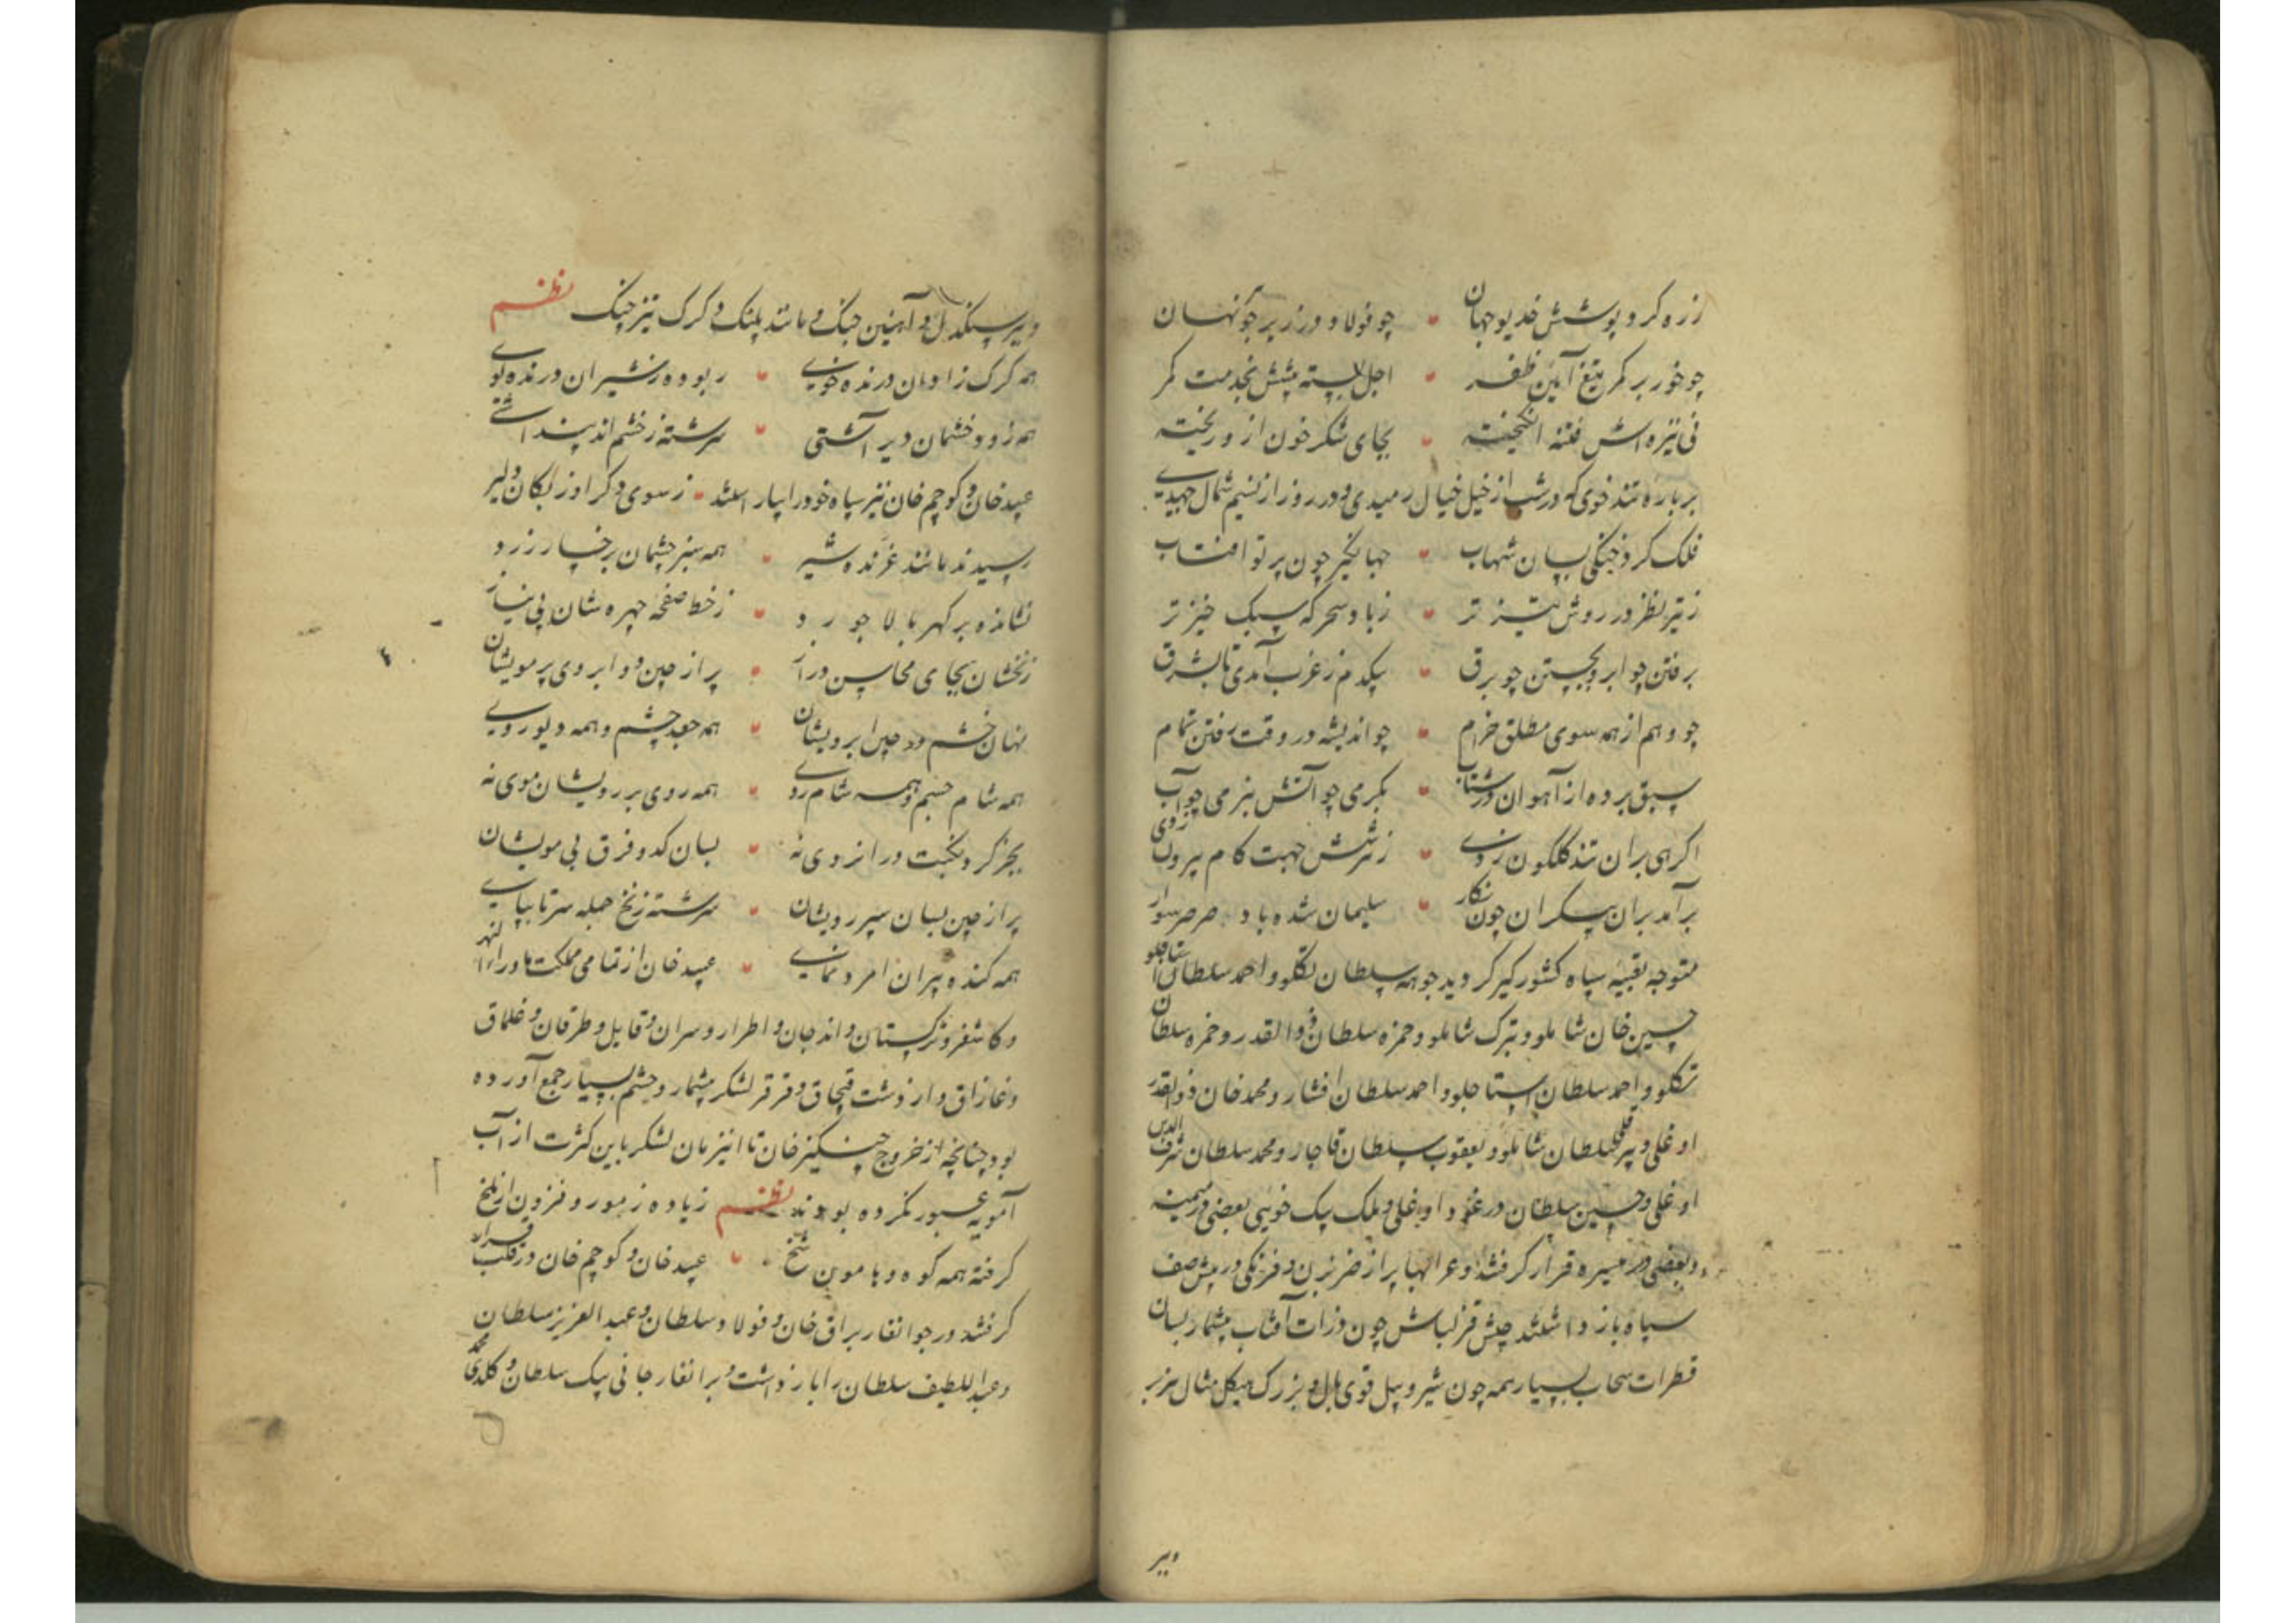 زره کرد پوشش خدیو جهان • چو فولاد در زیر جوهر نهان
چو خور بر کمر تیغ آیین ظفر • اجل بسته پیشش بخدمت کمر
نی نیزه اش فتنه انگیخته • بجای شکر خون ازو ریخته
بر باره تند خوی که در شب از خیل خیال رمیدی و در روز از نسیم شمال جهیدی
فلک کرد جنگی بسان شهاب • جهانگیر چون پرتو افتاب
ز تیر نظر در روش تیز تر • ز باد سحر که سبک خیز تر
برفتن چو ابر و بجستن چو برق • بیکدم ز غرب آمدی تا بشرق
چو وهم از همه سوی مطلق خرام • چو اندیشه در وقت رفتن تمام
سبق برده از آهوان در شتاب • بکرمی چو آتش بنرمی چو آب
اگر هی بران تند کلکون زدی • ز شش جهت کام بیرون زدی
برآمد بران پیکران چون نکار • سلیمان شده باد صرصر سوار
متوجه تعبیه سپاه کشور کیر کردید جوهه سلطان تکلو و احمد سلطان استاجلو
حسین خان شاملو و ترک شاملو و حمزه سلطان ذوالقدر و حمزه سلطان
تکلو و احمد سلطان استاجلو و احمد سلطان افشار و محمد خان ذوالقدر
اوغلی و پیرقلی سلطان شاملو و یعقوب سلطان قاجار و محمد سلطان شرف الدین
اوغلی و حسین سلطان در غزد اوغلی و ملک بیک خویی بعضی در میمنه
و بعضی در میسره قرار کرفتند و عرابها پر از ضربزن و فرنکی در پیش صف
سپاه باز داشتند جیش قزلباش چون ذرات آفتاب بیشمار بسان
قطرات سحاب بسیار همه چون شیر و پیل قوی بال و بزرک هیکل مثال هزبر
وببر
وببر سنکدل و آهنین جنک و مانند پلنک و کرک تیز چنک نظم
همه کرک زادان درنده خوی • ربوده ز شیران درنده کوی
همه زود خشمان دیر آشتی • سرشته ز خشم اند پنداشتی
عبید خان و کوچم خان نیز سپاه خود را بیاراستند • ز سوی دکر اوزبکان دلیر
رسیدند مانند غرنده شیر • همه سبز چشمان برخسار زرد
نشانده بر کهربا لاجورد • ز خط صفحه چهره شان بی نیاز
زنخشان بجای محاسن دراز • پر از چین دو ابروی پر مویشان
نهان خشم در چین ابرویشان • همه جغد چشم و همه دیو روی
همه شام جسم و همه شام روی • همه روی بر رویشان موی نه
بجز کرد نکبت در انروی نه • بسان کدو فرق بی مویشان
پر از چین بسان سپر رویشان • سرشته ز نخ جمله سر تا بپای
همه کنده پیران امرد نمای • عبید خان از تمامی مملکت ماوراء النهر
و کاشغر و ترکستان و اندجان و اطرار و سران و قابل و طرفان و قلماق
و غازاق و از دشت قبچاق و قرقر لشکر بیشمار و حشم بسیار جمع آورده
بود چنانچه از خروج چنکیز خان تا اینزمان لشکر باین کثرت از آب
آمویه عبور نکرده بودند نظم زیاده ز مور و فزون از ملخ
کرفته همه کوه و هامون شخ • عبید خان و کوچم خان در قلب قرار
کرفتند در جوانغار براق خان و فولاد سلطان و عبدالعزیز سلطان
و عبداللطیف سلطان را باز داشت و برانغار جانی بیک سلطان و کلدی محمد